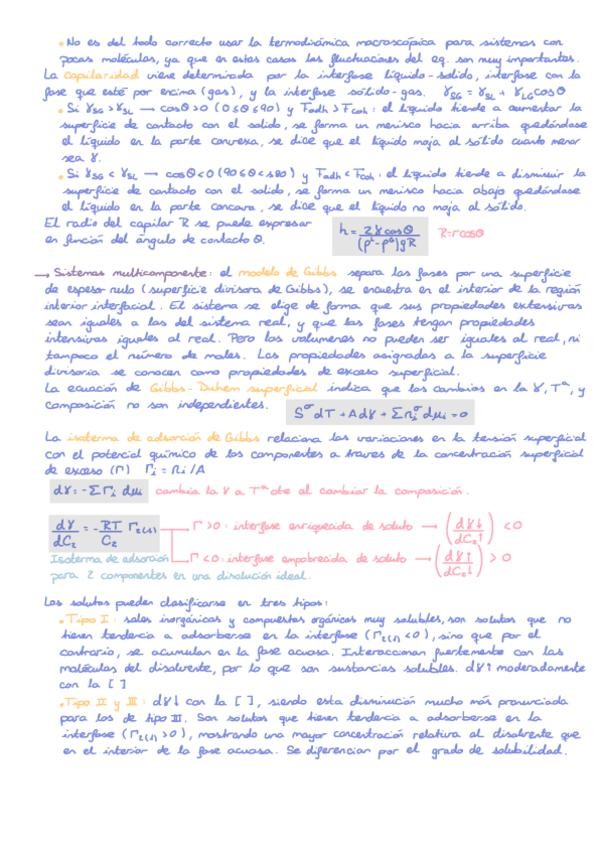 • No es del todo correcto usar la termodinámica macroscópica para sistemas con
pocas moléculas, ya que en estas casos las fluctuaciones del eq. son muy importantes.
La capilaridad viene determinada por la interfase líquido-sólido, interfase con la
fase que esté por encima (gas), y la interfase sólido-gas. γSG = γSL + γLG cosΘ
• Si γSG > γSL → cosΘ > 0 (0≤Θ≤90) y Fadh > Fcoh: el líquido tiende a aumentar la
superficie de contacto con el sólido, se forma un menisco hacia arriba quedándose
el líquido en la parte convexa, se dice que el líquido moja al sólido cuanto menor
sea γ.
• Si γSG < γSL → cosΘ < 0 (90≤Θ<180) y Fadh < Fcoh: el líquido tiende a disminuir la
superficie de contacto con el sólido, se forma un menisco hacia abajo quedándose
el líquido en la parte concava, se dice que el líquido no moja al sólido.
El radio del capilar R se puede expresar
en función del ángulo de contacto Θ.
h = 2γcosΘ / (ρᴸ-ρᴳ)gR R=rcosΘ
→ Sistemas multicomponente: el modelo de Gibbs separa las fases por una superficie
de espesor nulo (superficie divisora de Gibbs), se encuentra en el interior de la región
interior interfacial. El sistema se elige de forma que sus propiedades extensivas
sean iguales a las del sistema real, y que las fases tengan propiedades
intensivas iguales al real. Pero los volumenes no pueden ser iguales al real, ni
tampoco el número de moles. Las propiedades asignadas a la superficie
divisoria se conocen como propiedades de exceso superficial.
La ecuación de Gibbs-Duhem superficial indica que los cambios en la γ, Tª, y
composición no son independientes. S^σ dT + A dγ + Σni^σ dμi = 0
La isoterma de adsorción de Gibbs relaciona las variaciones en la tensión superficial
con el potencial químico de los componentes a traves de la concentración superficial
de exceso (Γ) Γi = ni/A
dγ = -ΣΓi dμi cambia la γ a Tª cte al cambiar la composición.
dγ/dC2 = -RT/C2 Γ2(1) → Γ>0: interfase enriquecida de soluto → (dγ↓/dC2↑) < 0
Γ<0: interfase empobrecida de soluto → (dγ↑/dC2↑) > 0
Isoterma de adsorción
para 2 componentes en una disolución ideal.
Los solutos pueden clasificarse en tres tipos:
• Tipo I: sales inorgánicas y compuestos orgánicos muy solubles, son solutos que no
tienen tendencia a adsorberse en la interfase (Γ2(1)<0), sino que por el
contrario, se acumulan en la fase acuosa. Interaccionan fuertemente con las
moléculas del disolvente, por lo que son sustancias solubles. dγ↑ moderadamente
con la [ ]
• Tipo II y III: dγ↓ con la [ ], siendo esta disminución mucho más pronunciada
para los de tipo III. Son solutos que tienen tendencia a adsorberse en la
interfase (Γ2(1)>0), mostrando una mayor concentración relativa al disolvente que
en el interior de la fase acuosa. Se diferencian por el grado de solubilidad.